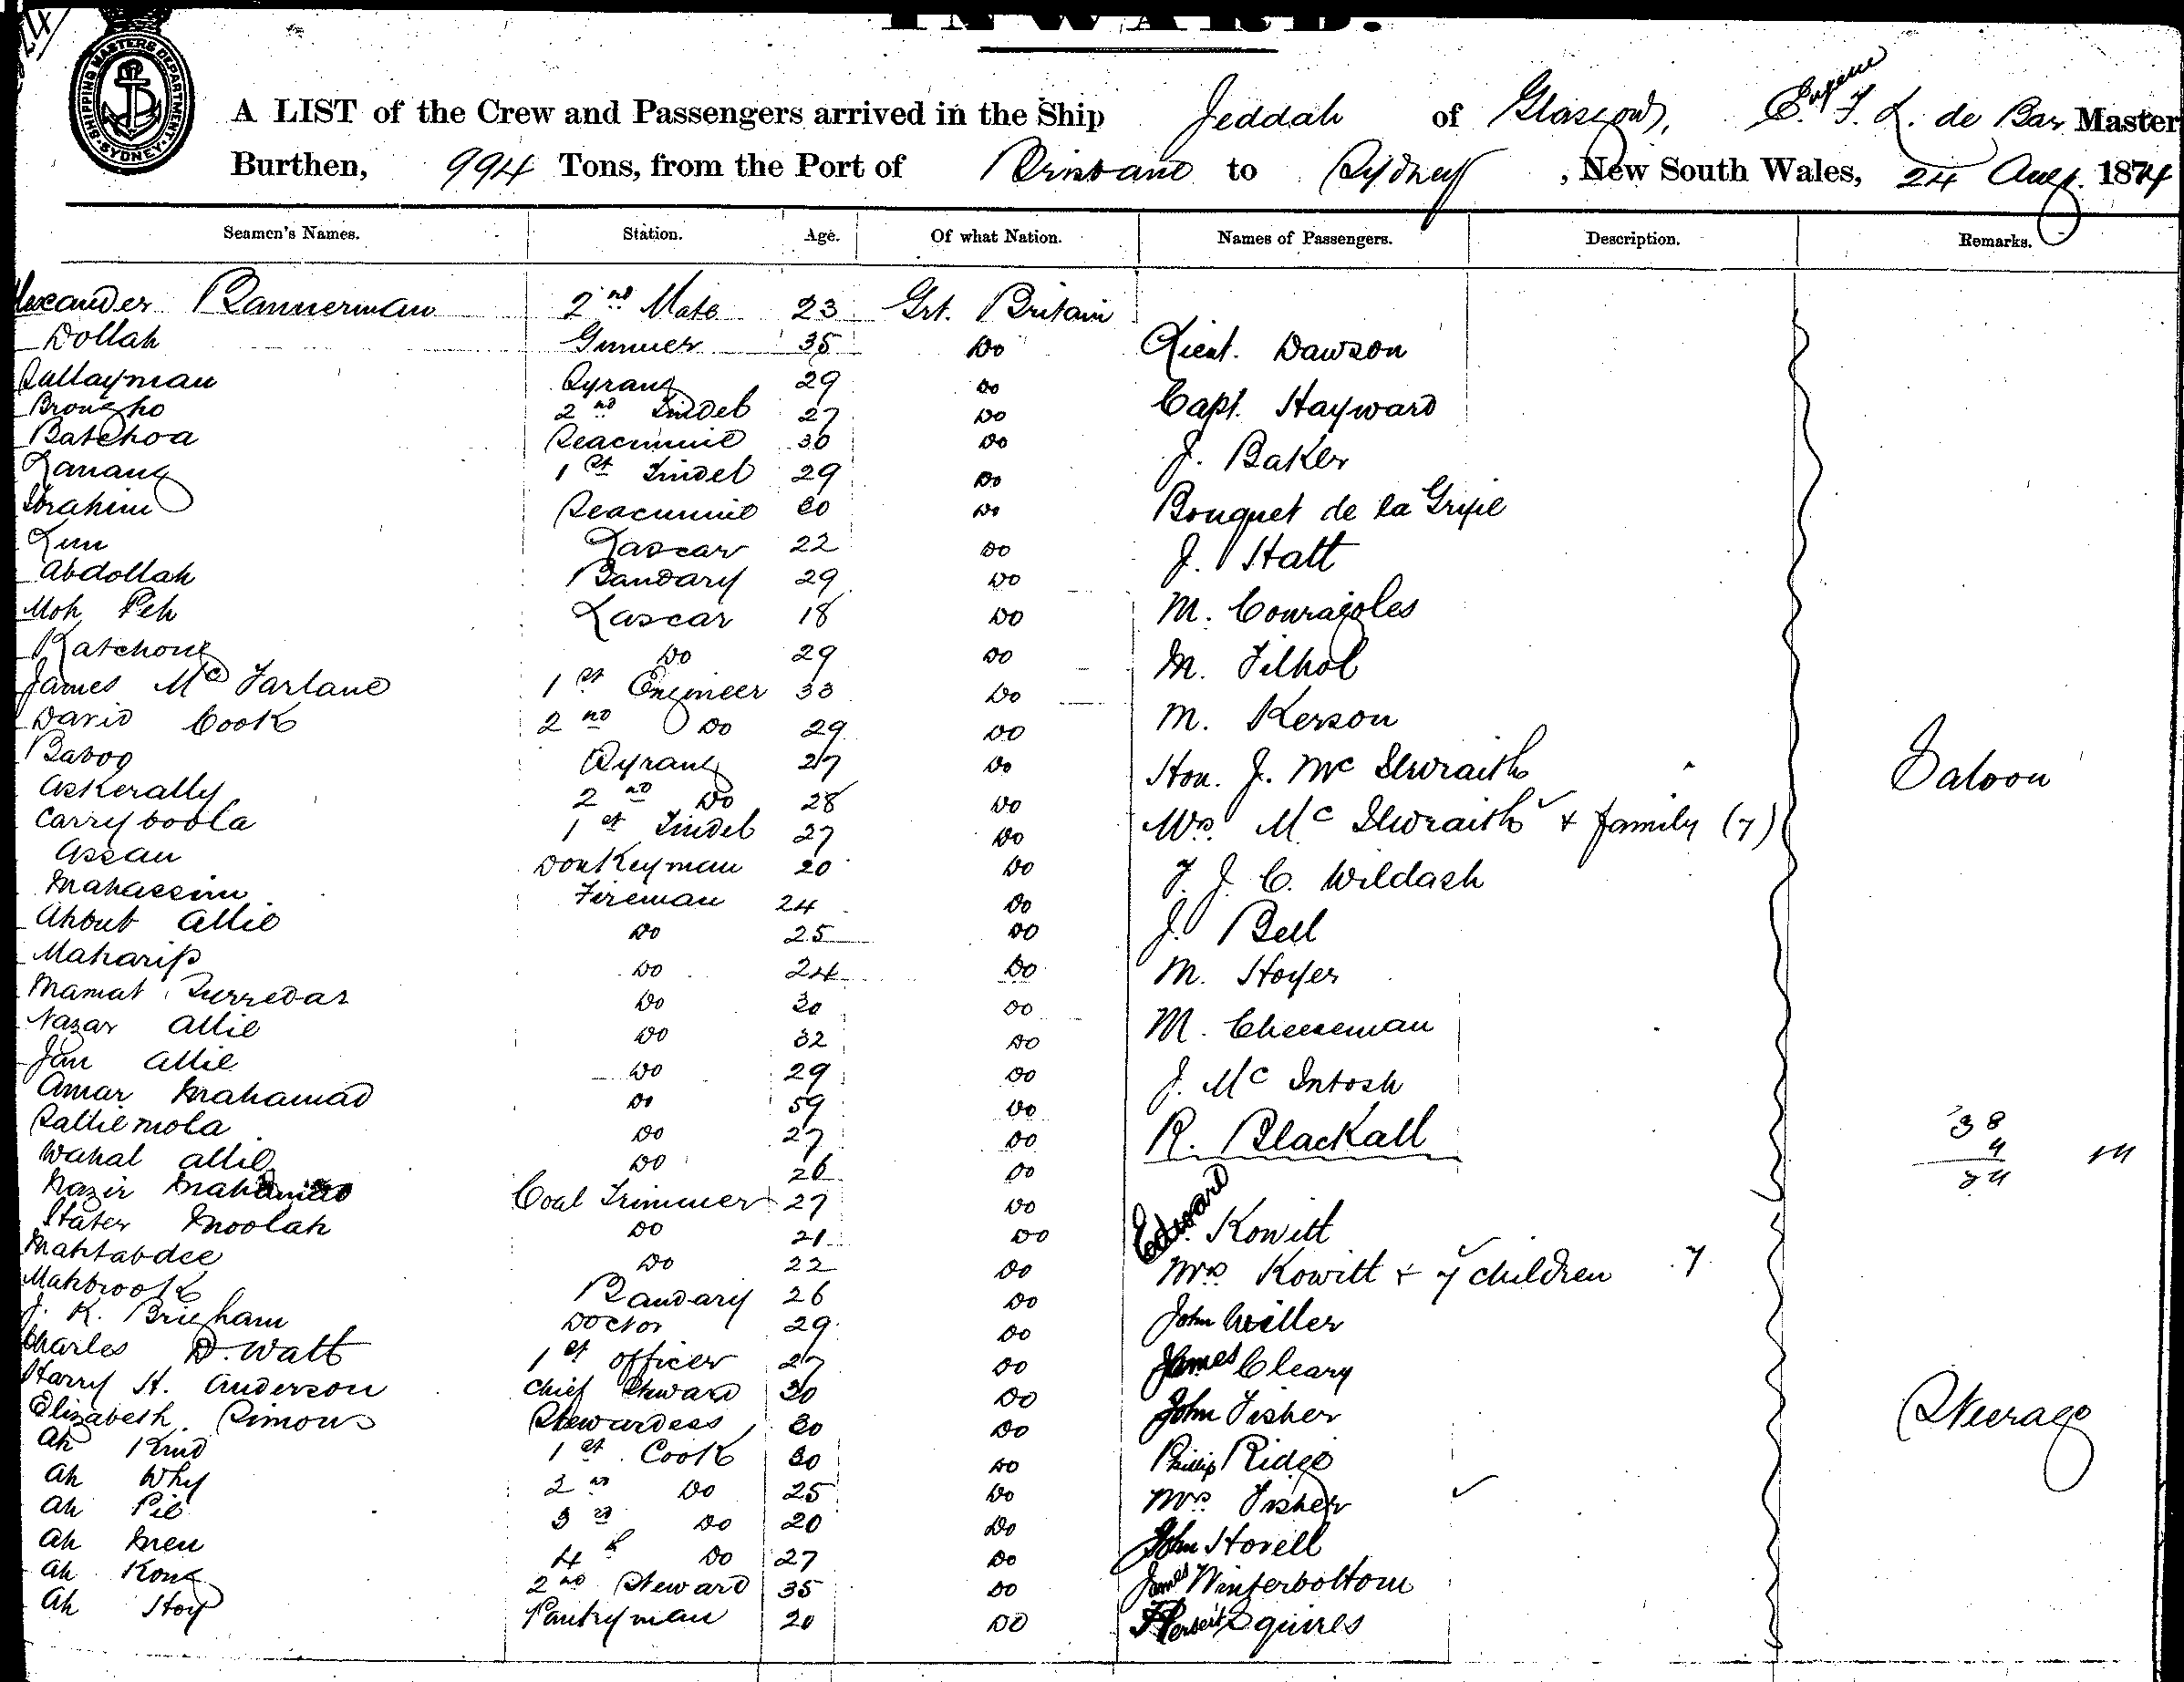 INWARD.
SHIPPING MASTERS DEPARTMENT SYDNEY
A LIST of the Crew and Passengers arrived in the Ship Jeddah of Glasgow, Eugene F. L. de Bar Master
Burthen, 994 Tons, from the Port of Brisbane to Sydney, New South Wales, 24 Aug. 1874
Seamen's Names. Station. Age. Of what Nation. Names of Passengers. Description. Remarks.
Alexander Bannerman 2nd Mate 23 Grt. Britain
Dollah Gunner 35 Do Lieut. Dawson
Sullayman Syrang 29 Do Capt. Hayward
Brongho 2nd Tindel 27 Do
Batchoa Seacunnie 30 Do J. Baker
Lanang 1st Tindel 29 Do
Ibrahim Seacunnie 30 Do Bouquet de la Grye
Lascar 22 Do J. Hatt
Abdollah Bandary 29 Do
Moh Peh Lascar 18 Do M. Courajoles
Katchong Do 29 Do M. Filhol
James McFarlane 1st Engineer 33 Do
David Cook 2nd Do 29 Do M. Kerson
Baboo Syrang 27 Do Hon. J. McIlwraith Saloon
Askerally 2nd Do 28 Do
Carryboola 1st Tindel 27 Do Mrs. McIlwraith + family (7)
Assan Donkeyman 20 Do F. J. C. Wildash
Mahassim Fireman 24 Do
Ahbut Allie Do 25 Do J. Bell
Maharip Do 24 Do M. Hoyer
Mamat Do 30 Do
Nazar Allie Do 32 Do M. Cheeseman
Jan Allie Do 29 Do J. McIntosh
Amar Mahamad Do 59 Do
Salliemola Do 27 Do R. Blackall 38
Wahal Allie Do 26 Do 4
Nazir Mahamad Coal Trimmer 27 Do
Stater Moolah Do 21 Do Edward Kowitt
Mahtabdee Do 22 Do Mrs Kowitt + 7 children 7
Mahbrook Bandary 26 Do
J. K. Brigham Doctor 29 Do John Miller
Charles D. Watt 1st Officer 27 Do James Cleary
Harry H. Anderson Chief Steward 30 Do John Fisher Steerage
Elizabeth Simons Stewardess 30 Do
Ah 1st Cook 30 Do Phillip Ridge
Ah Why 2nd Do 25 Do Mrs Fisher
Ah Pie 3rd Do 20 Do
Ah Men 4th Do 27 Do John Hovell
Ah Kong 2nd Steward 35 Do James Winterbottom
Ah Hoy Pantryman 20 Do Herbert Squires